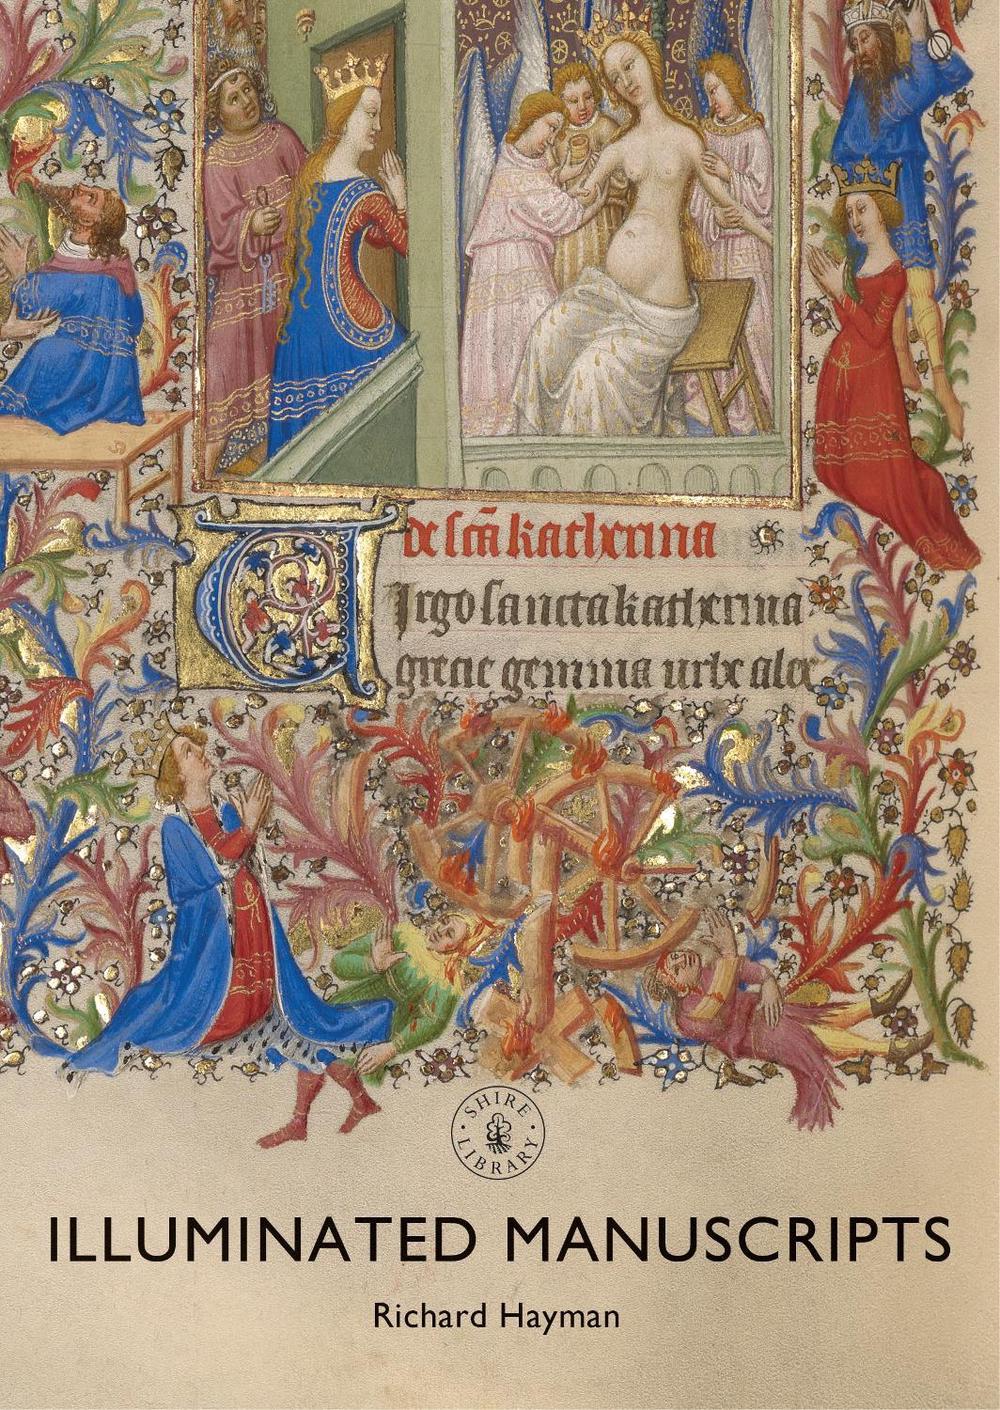 de sc̄a katherina
Virgo sancta katherina
grecie gemma urbe alex
SHIRE LIBRARY
ILLUMINATED MANUSCRIPTS
Richard Hayman